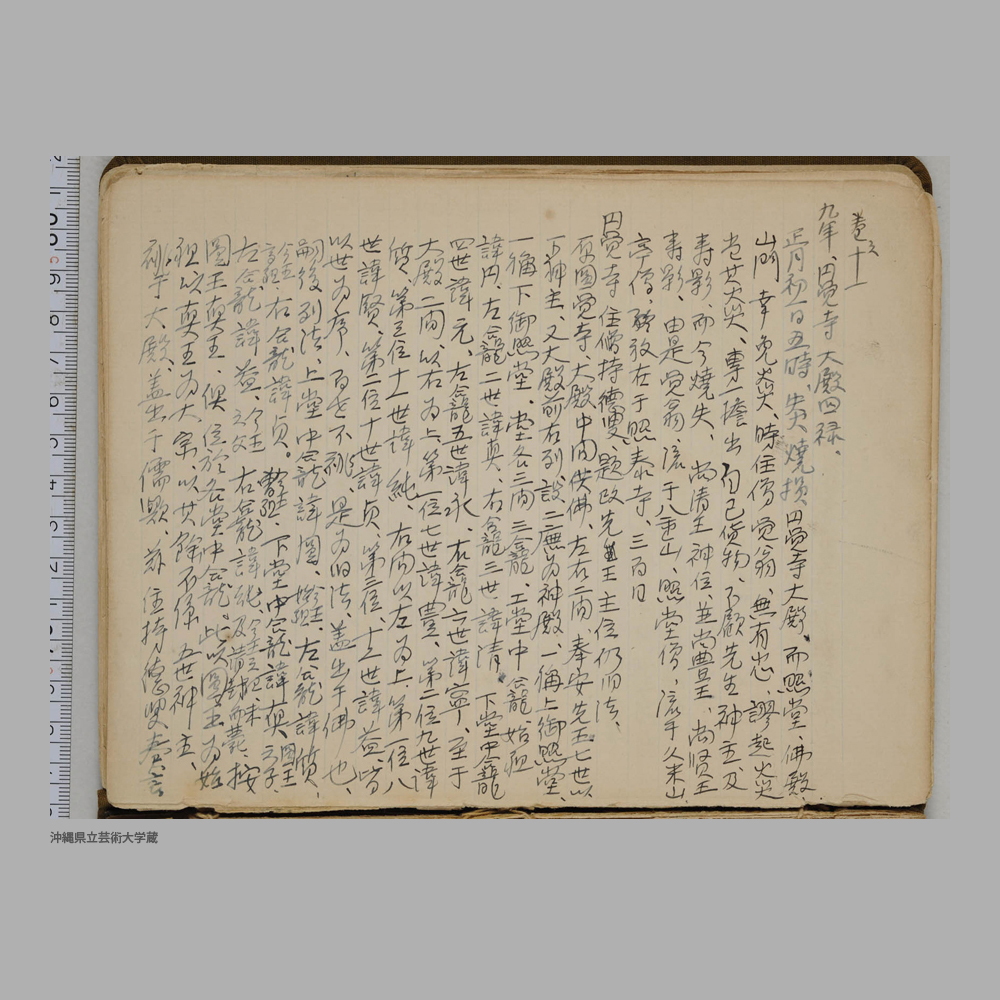 巻之十一
九年、円覚寺大殿回禄、
正月初一日五時、失火焼損円覚寺大殿、而照堂、佛殿、
山門幸免炎火、時住僧覚翁、無有忠、謬起火災
当其大災、専一擔出自己貨物、不顧先生神主及
寿影而今焼失、尚清王神位、並尚豊王、尚賢王
寿影、由是覚翁、流于八重山、照堂僧、流于久米山
亭僧、移放在于照泰寺、三百日
円覚寺住僧持德叟、題改先王主位仍旧法、
原圓覚寺大殿中間供佛、左右二間、奉安先王七世以
下神主、又大殿前右列、設二廡為神殿、一偁上御照堂、
一稱下御照堂、堂各三間三龕、上堂中龕、始祖
諱円、左龕二世諱真、右龕三世諱清、下堂中龕
四世諱元、左龕五世諱永、右龕六世諱寧、至于
大殿二間、以右為上、第一位七世諱豊、第二位九世諱
質、第三位十一世諱純、右間以左為上、第一位八
世諱賢、第二位十世諱貞、第三位、十二世諱益、皆
以世為序、百世不祧、是為旧法、盖出于佛也、
嗣後列法、上堂中龕諱圓、左龕諱質、
右龕諱貞。下堂中龕諱真
左龕諱益、右龕諱純、及 按
圓王真王、俱位於各堂中龕、此以圓王為始
祖以真王為大宗、以其餘不係五世神主、
列于大殿、盖出于儒歟、茲住持德叟奏言